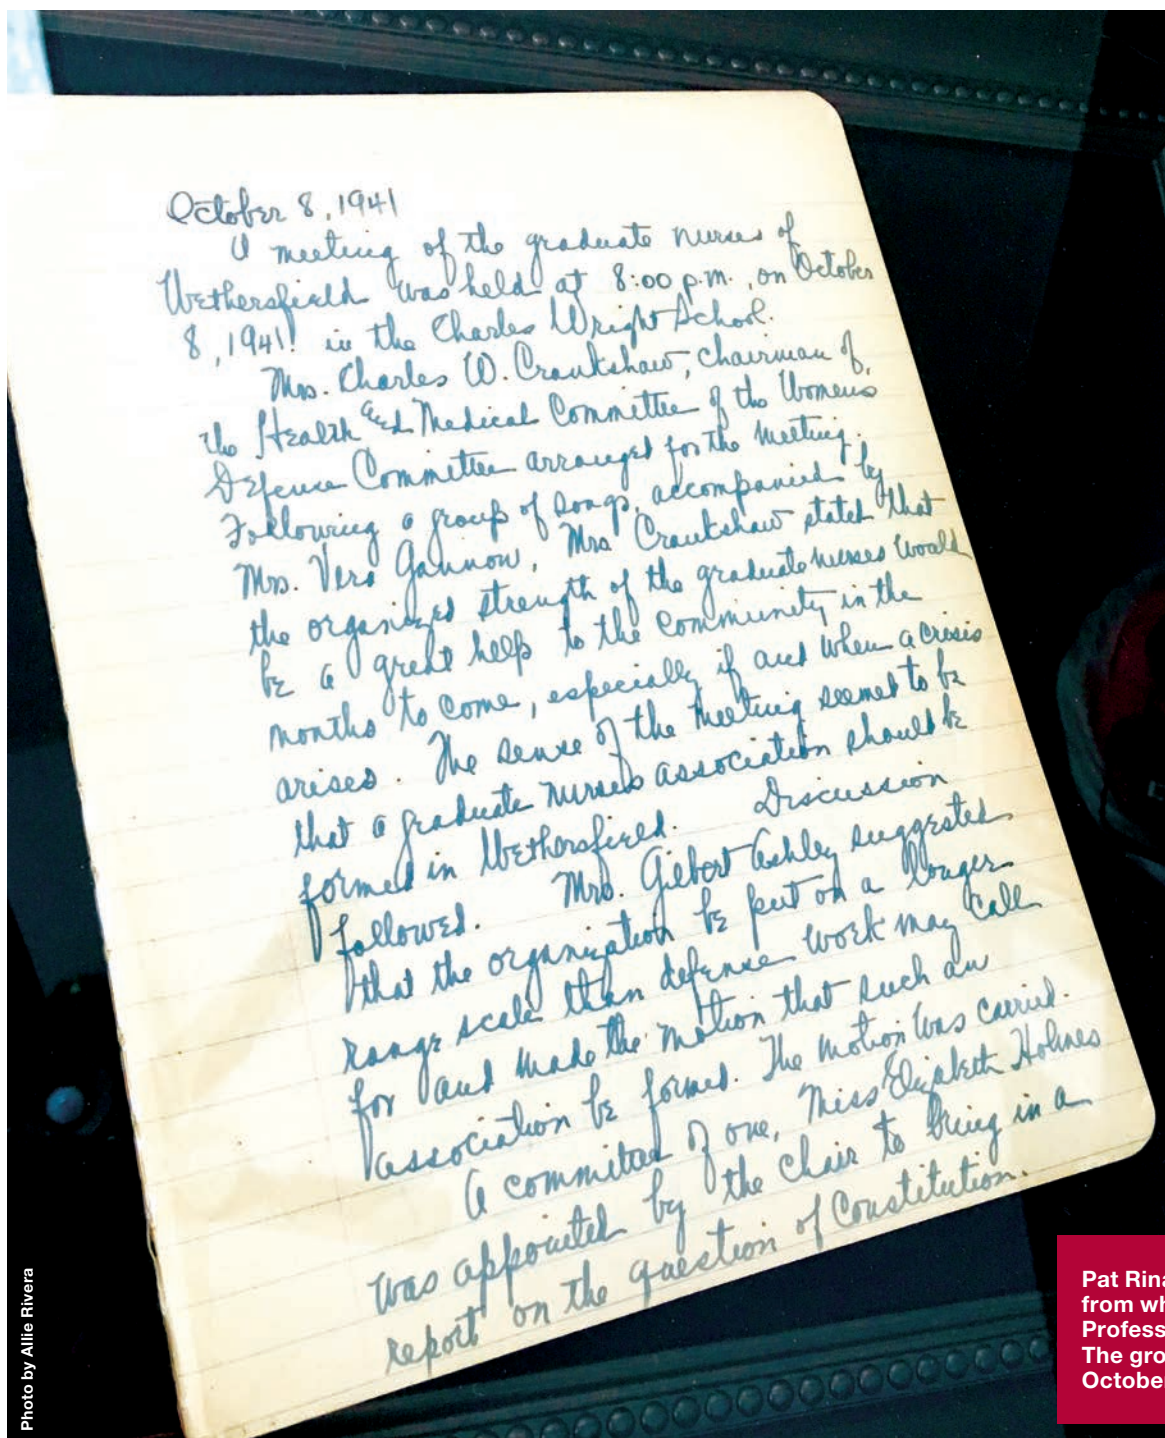 October 8, 1941
A meeting of the graduate nurses of
Wethersfield was held at 8:00 p.m., on October
8, 1941 in the Charles Wright School.
Mrs. Charles W. Crankshaw, chairman of
the Health and Medical Committee of the Womens
Defense Committee arranged for the meeting.
Following a group of songs, accompanied by
Mrs. Vera Gannow, Mrs Crankshaw stated that
the organized strength of the graduate nurses would
be a great help to the community in the
months to come, especially if and when a crisis
arises. The sense of the meeting seemed to be
that a graduate nurses association should be
formed in Wethersfield. Discussion
followed. Mrs. Gilbert Ashley suggested
that the organization be put on a longer
range scale than defense work may call
for and made the motion that such an
association be formed. The motion was carried.
A committee of one, Miss Elizabeth Holmes
was appointed by the chair to bring in a
report on the question of Constitution.
Photo by Allie Rivera
Pat Rina
from wh
Profess
The gro
October